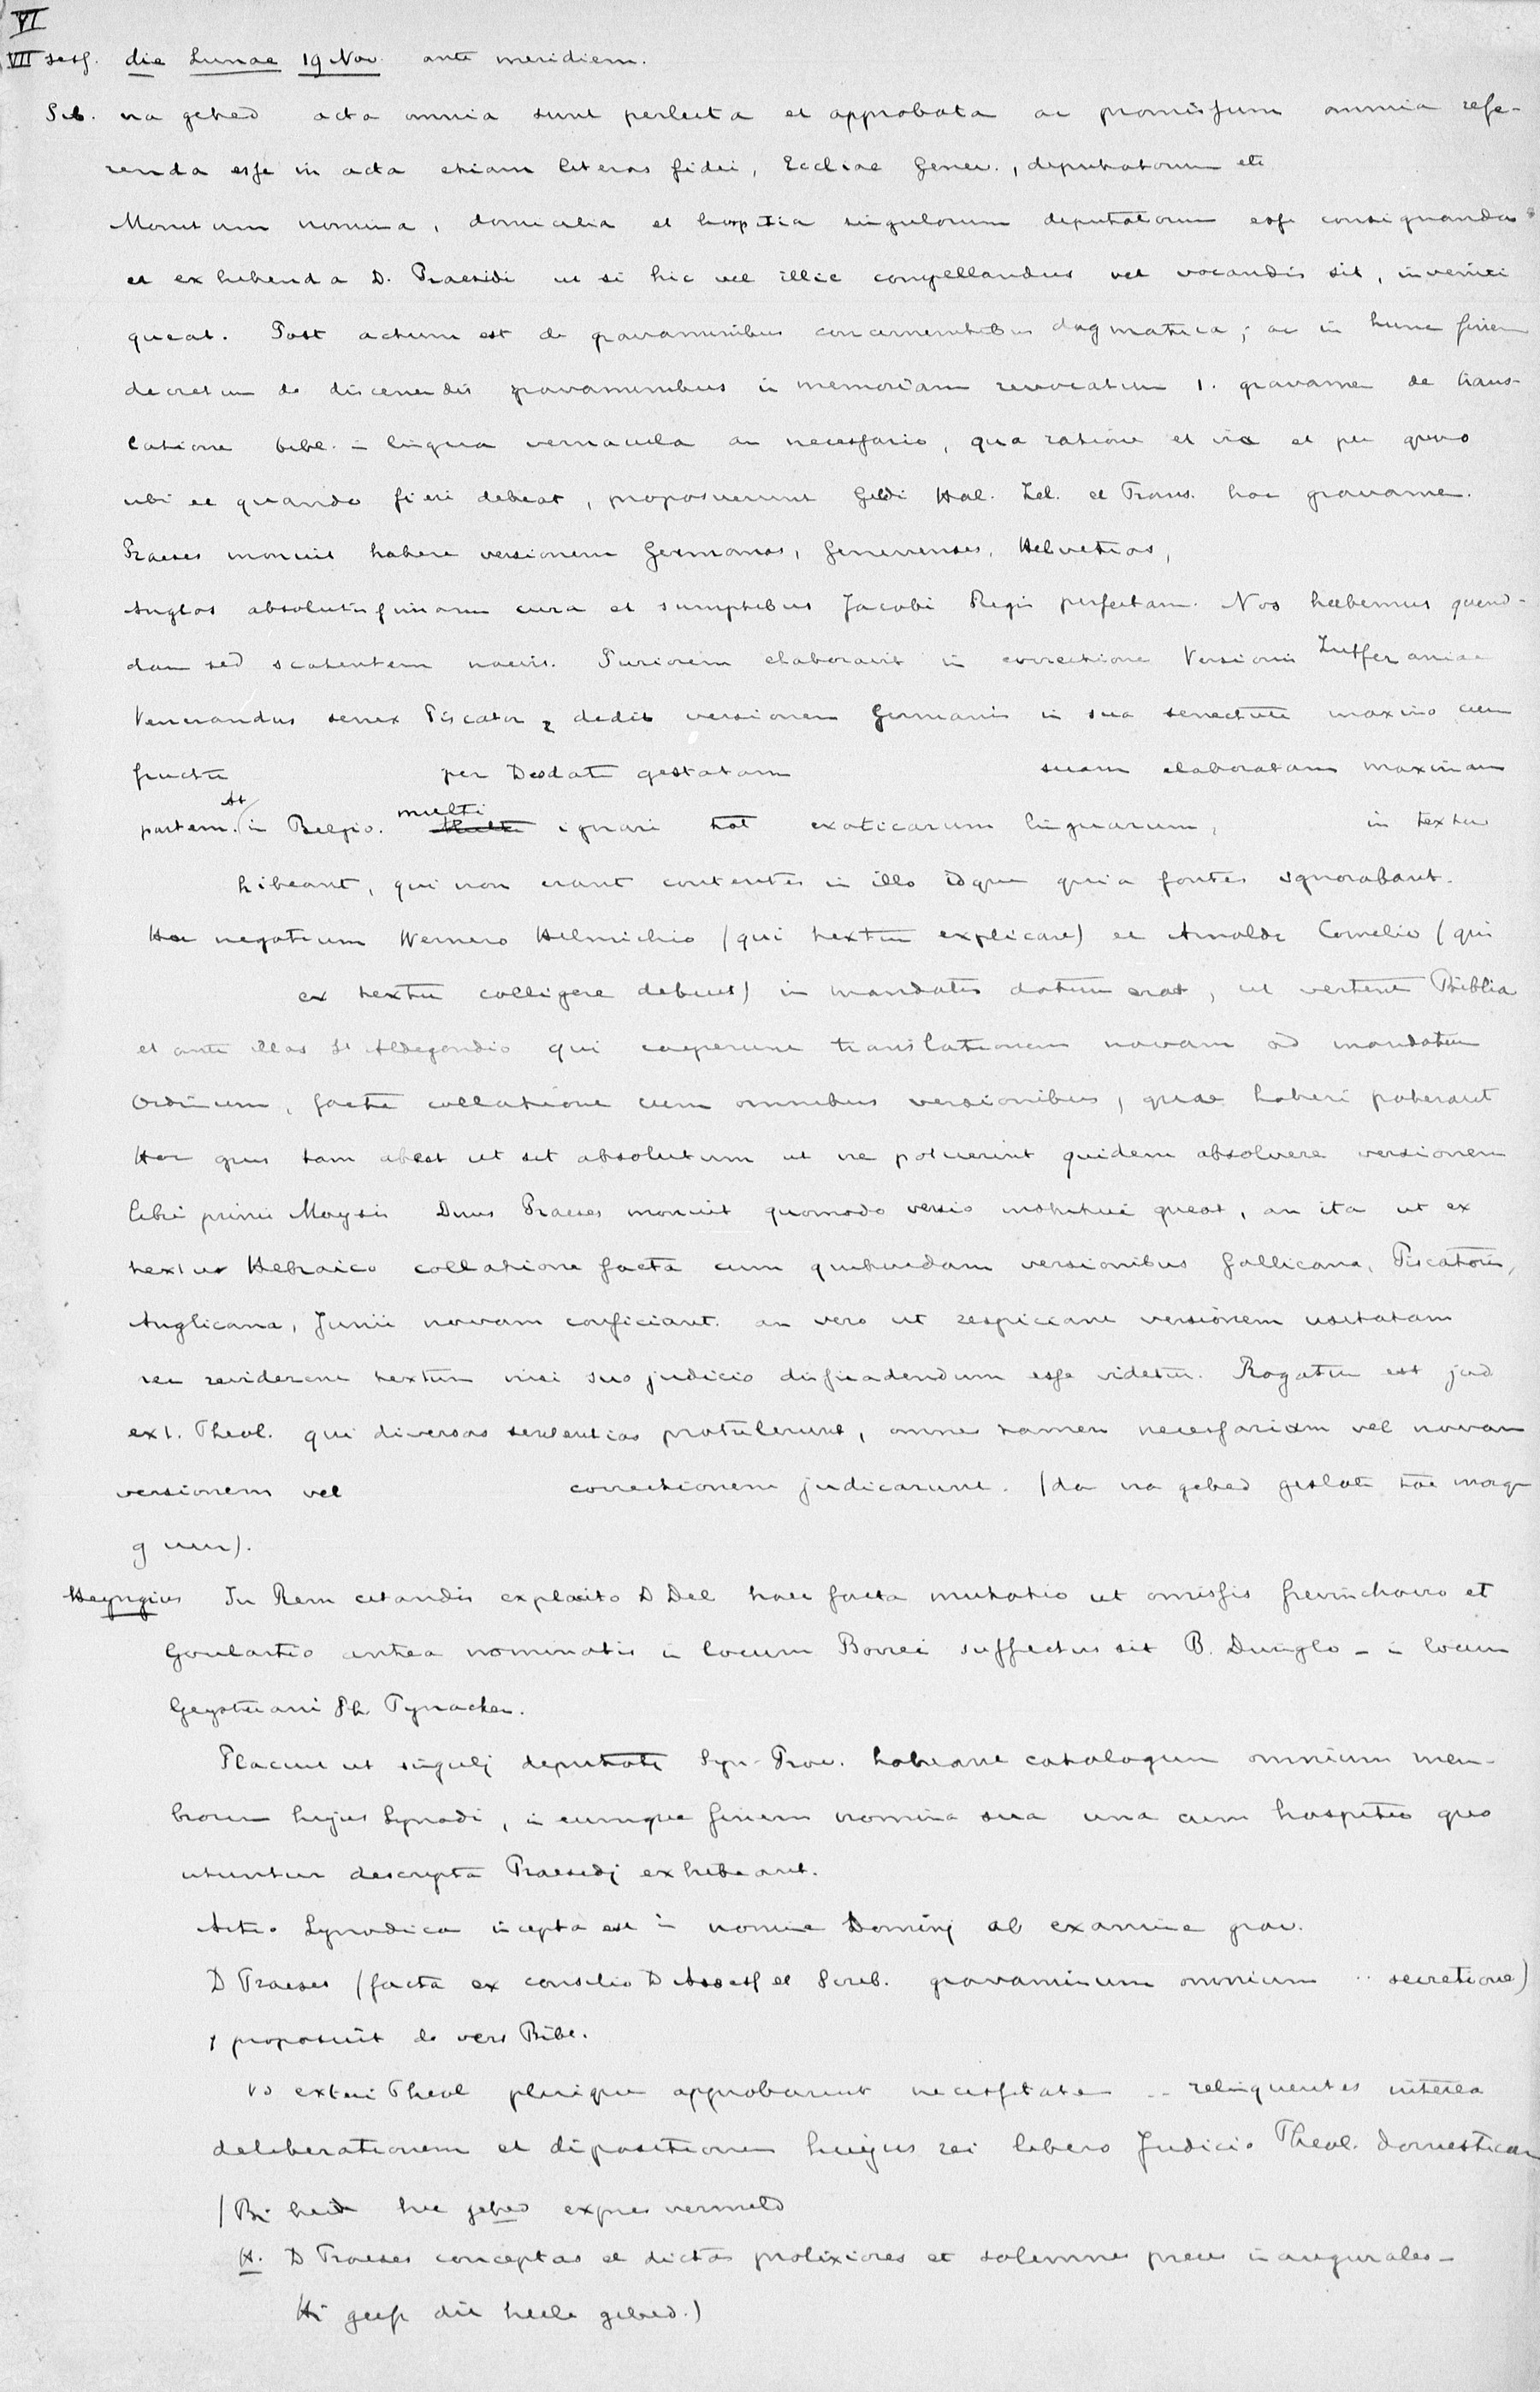 VI
VII sess. die Lunae 19 Nov. ante meridiem.
Sib. na gebed acta omnia sunt perlecta et approbata ac promissum omnia refe-
renda esse in acta etiam literas fidei, Eccliae Genev., deputatorum etc
Monitum nomina, domicilia et hospitia singulorum deputatorum esse consignanda
et exhibenda D. Praesidi ut si hic vel illic compellandus vel vocandis sit, inveniri
queat. Post actum est de gravaminibus concernentibus dogmatica; ac in hunc finem
decretum de discenendis gravaminibus in memoriam revocatum 1. gravamen de trans-
latione bibl. in lingua vernacula an necessario, qua ratione et via et per quos
ubi et quando fieri debeat, proposuerunt Geldi Hol. Zel. et Trans. hoc gravamen.
Praeses monuit habere versionem Germanos, Genevenses, Helvetios,
Anglos absolutissimam cura et sumptibus Jacobi Regis perfectam. Nos habemus quend-
dam sed scatentem naevis. Puriorem elaboravit in correctione Versionis Lutheranae
Venerandus senex Piscator, dedit versionem Germanis in sua senectute maximo cum
fructu per Deodatū gestatam suam elaboratam maximam
partem. At in Belgio. multi ignari tot exoticarum linguarum, in textu
hibeant, qui non erant contentes in illo idque quia fontes ignorabant.
Hoc negotium Wernero Helmichio (qui textum explicare) et Arnoldo Cornelio (qui
ex textu colligere debuit) in mandatis datum erat, ut vertent Biblia
et ante illos St Aldegondio qui caeperunt translationem novam ad mandatum
Ordinum, facta collatione cum omnibus versionibus, quae haberi poterant
Hoc opus tam abest ut sit absolutum ut ne potuerint quidem absolvere versionem
libri primi Moysis Dnus Praeses monuit quomodo versio institui queat, an ita ut ex
textu Hebraico collatione facta cum quibusdam versionibus Gallicana, Piscatoris,
Anglicana, Junii novam conficiant. an vero ut respiciant versionem usitatam
nec reviderent textum nisi suo judicio discedendum esse videtur. Rogatum est jud
ext. Theol. qui diversas sententias protulerunt, omnes tamen necessariam vel novam
versionem vel correctionem judicarunt. (da na gebed gesloten toe
g uur).
Heyngius In Rem citandis D Del haec facta mutatio ut omissis Grevinchovio et
Goulartio antea nominatis in locum Borrei suffectus sit B. Dwinglo - in locum
Geysteriani Ph. Pynacker.
Placuit ut singuli deputati Syn. Prov. habeant catalogum omnium mem-
brorum hujus Synodi, in eumque finem nomina sua una cum hospitio quo
utuntur descripta Praesidi exhibeant.
Actio Synodica incepta est in nomine Domini ab examine grav.
D Praeses (facta ex consilio D Assess et Scrib. gravaminum omnium .. secretione)
1 proposuit de vers Bibl.
D exteri Theol plerique approbarunt necessitatem .. relinquentes interea
deliberationem et dipositionem hujus rei libero Judicio Theol. domesticorum
(Bij heid hee gebed expres vermeld
H. D Praeses conceptas et dictas prolixiores et solemnes preces inaugurales -
Hij geeft die heele gebed.)